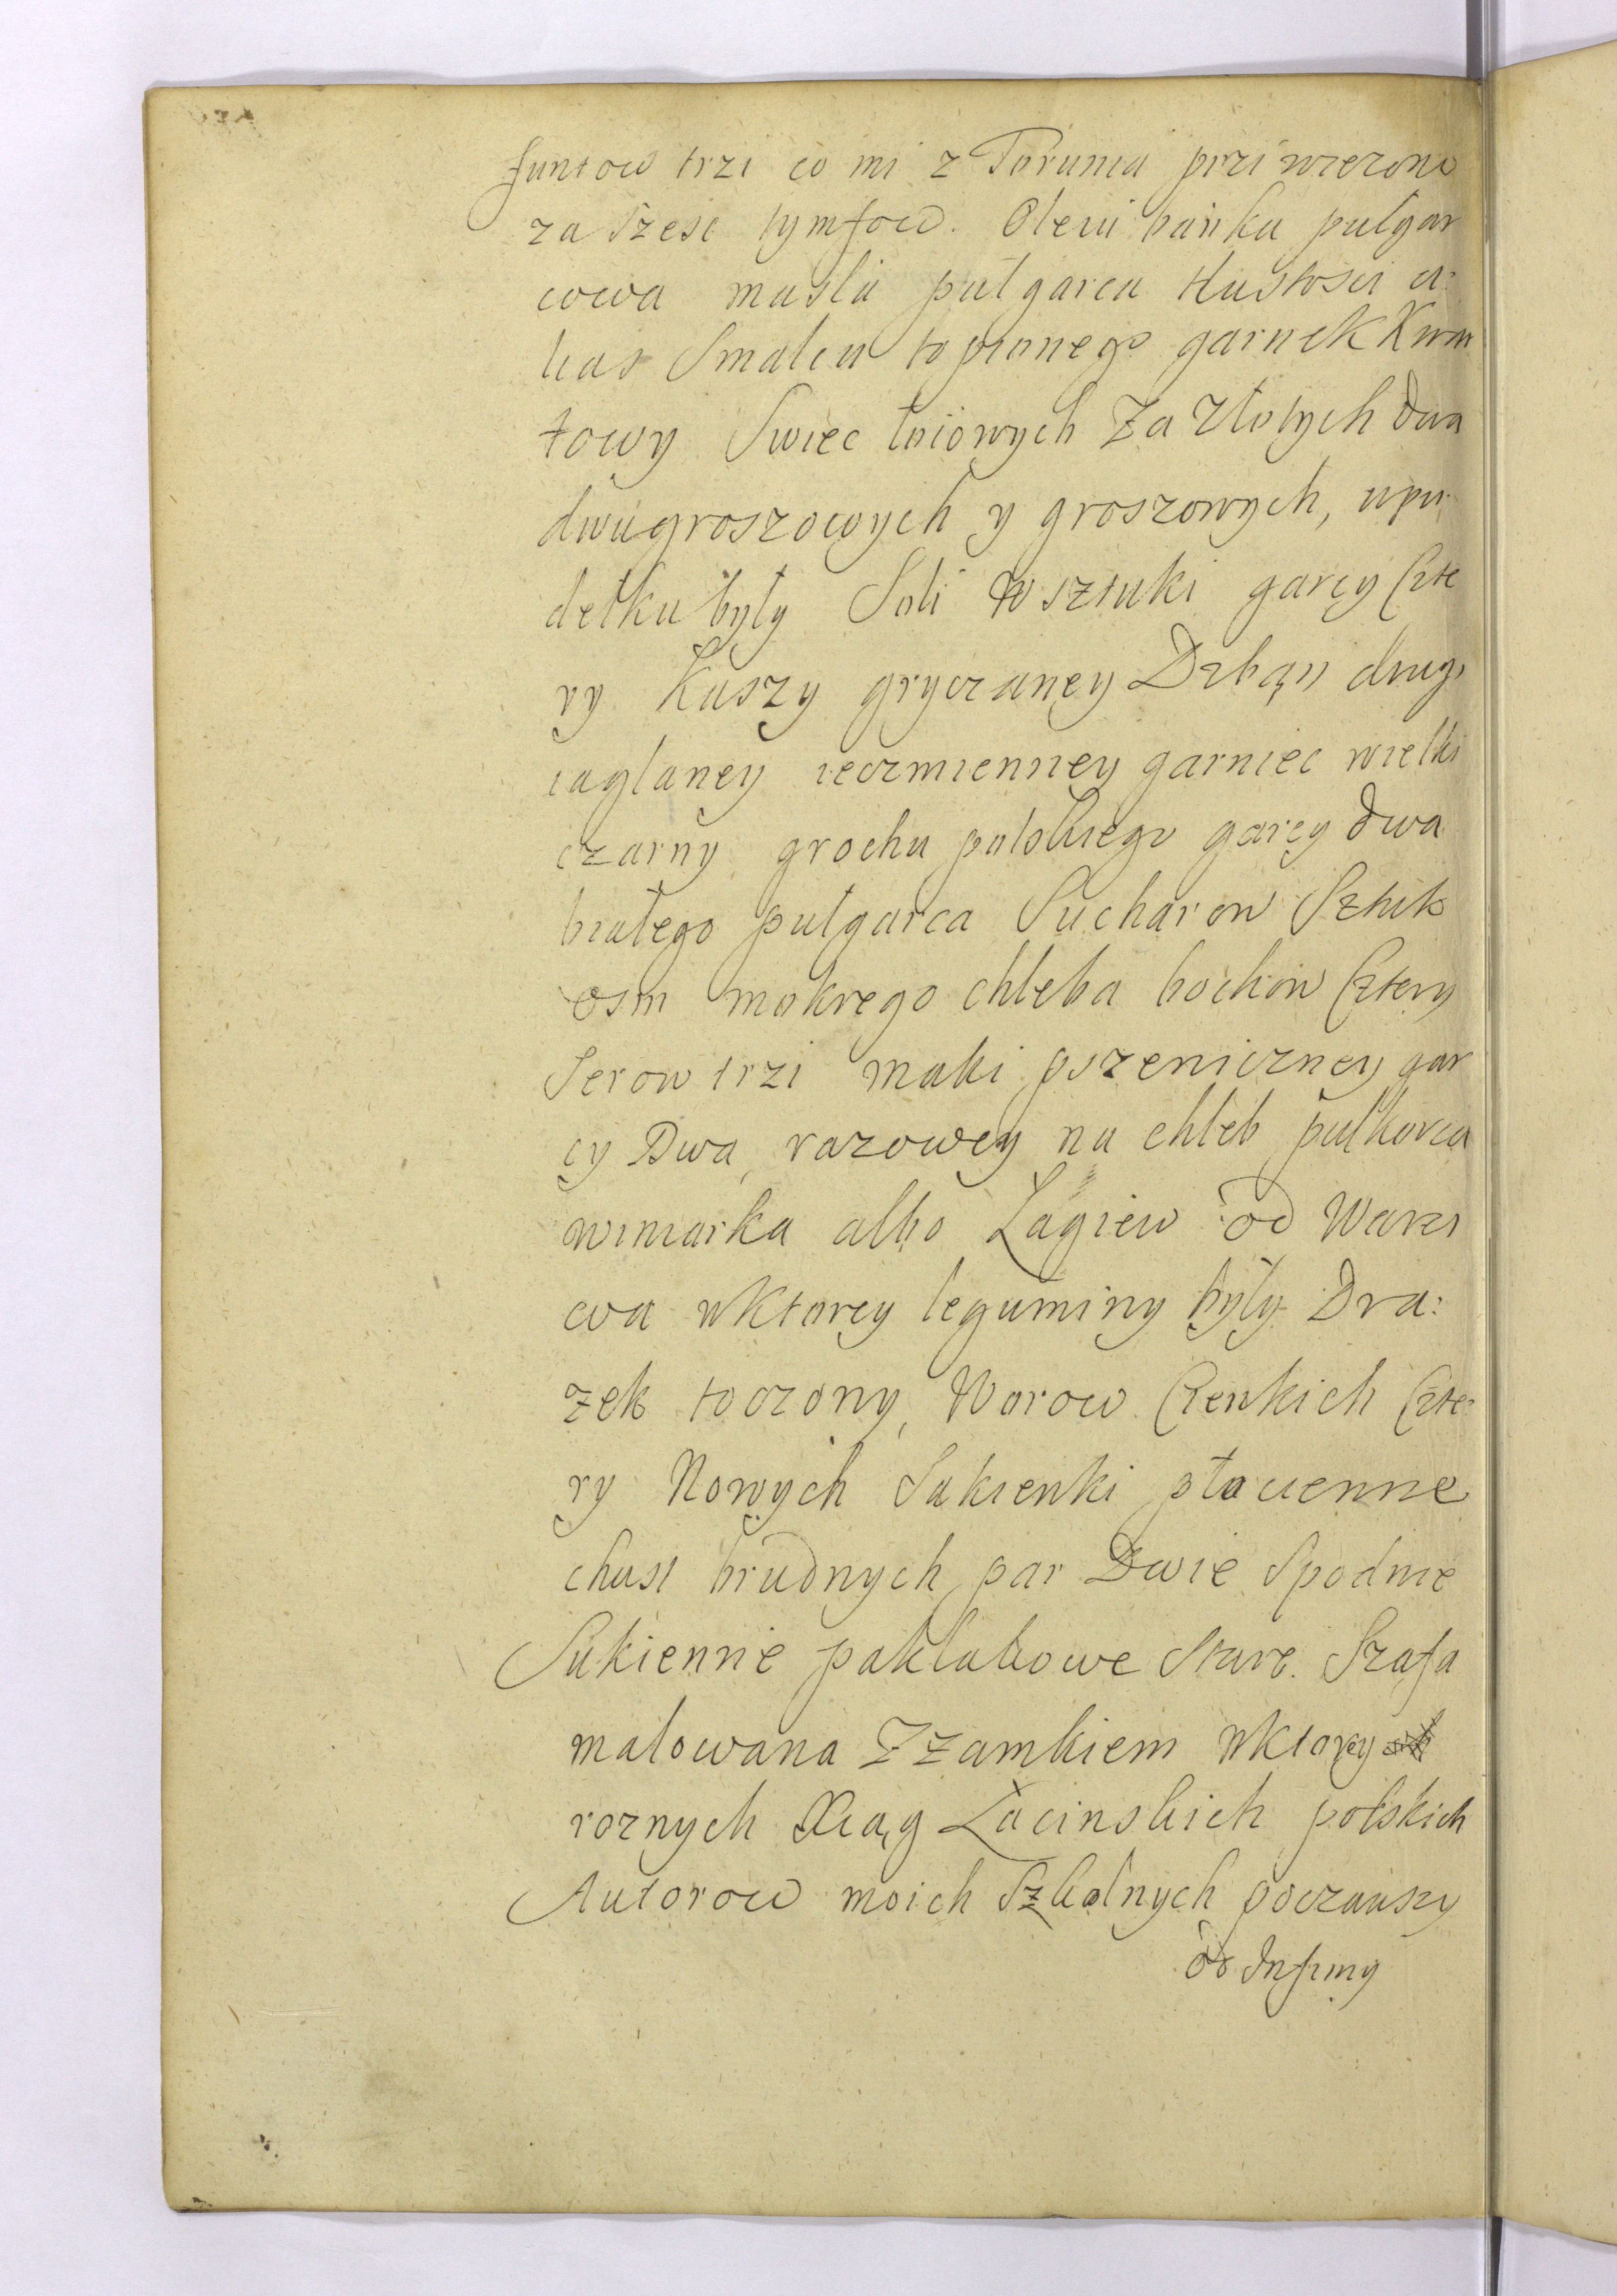 funtow trzi co mi z Torunia prziwieziono
za szesc tymfow. Oleiu bańka pułgar
cowa masła puł garca tłustosci a:
lias Smalcu topionego garnek Kwar
towy Swiec łoiowych Za Złotych dwa
dwugroszowych y groszowych, wpu
dełku były Soli w sztuki garcy Czte
ry Kaszy gryczaney Dzban drugi
iaglaney ieczmienney garniec wielki
czarny grochu polskiego garcy dwa
białego pułgarca Sucharow Sztuk
osm mokrego chleba bochów Cztery
Serow trzi maki pszeniczney gar
cy Dwa, razowey na chleb pułkorca
winiarka albo Łagiew od Warzi
wa wktorey leguminy były Dra:
zek toczony, Worow Czenkich Czte:
ry Nowych Sukienki płocienne
chust brudnych par Dwie Spodnie
Sukiennie pakłakowe Stare. Szafa
malowana Z zamkiem wktorey
roznych Xiąg Łacinskich polskich
Autorow moich Szkolnych począwszy
od Infimy